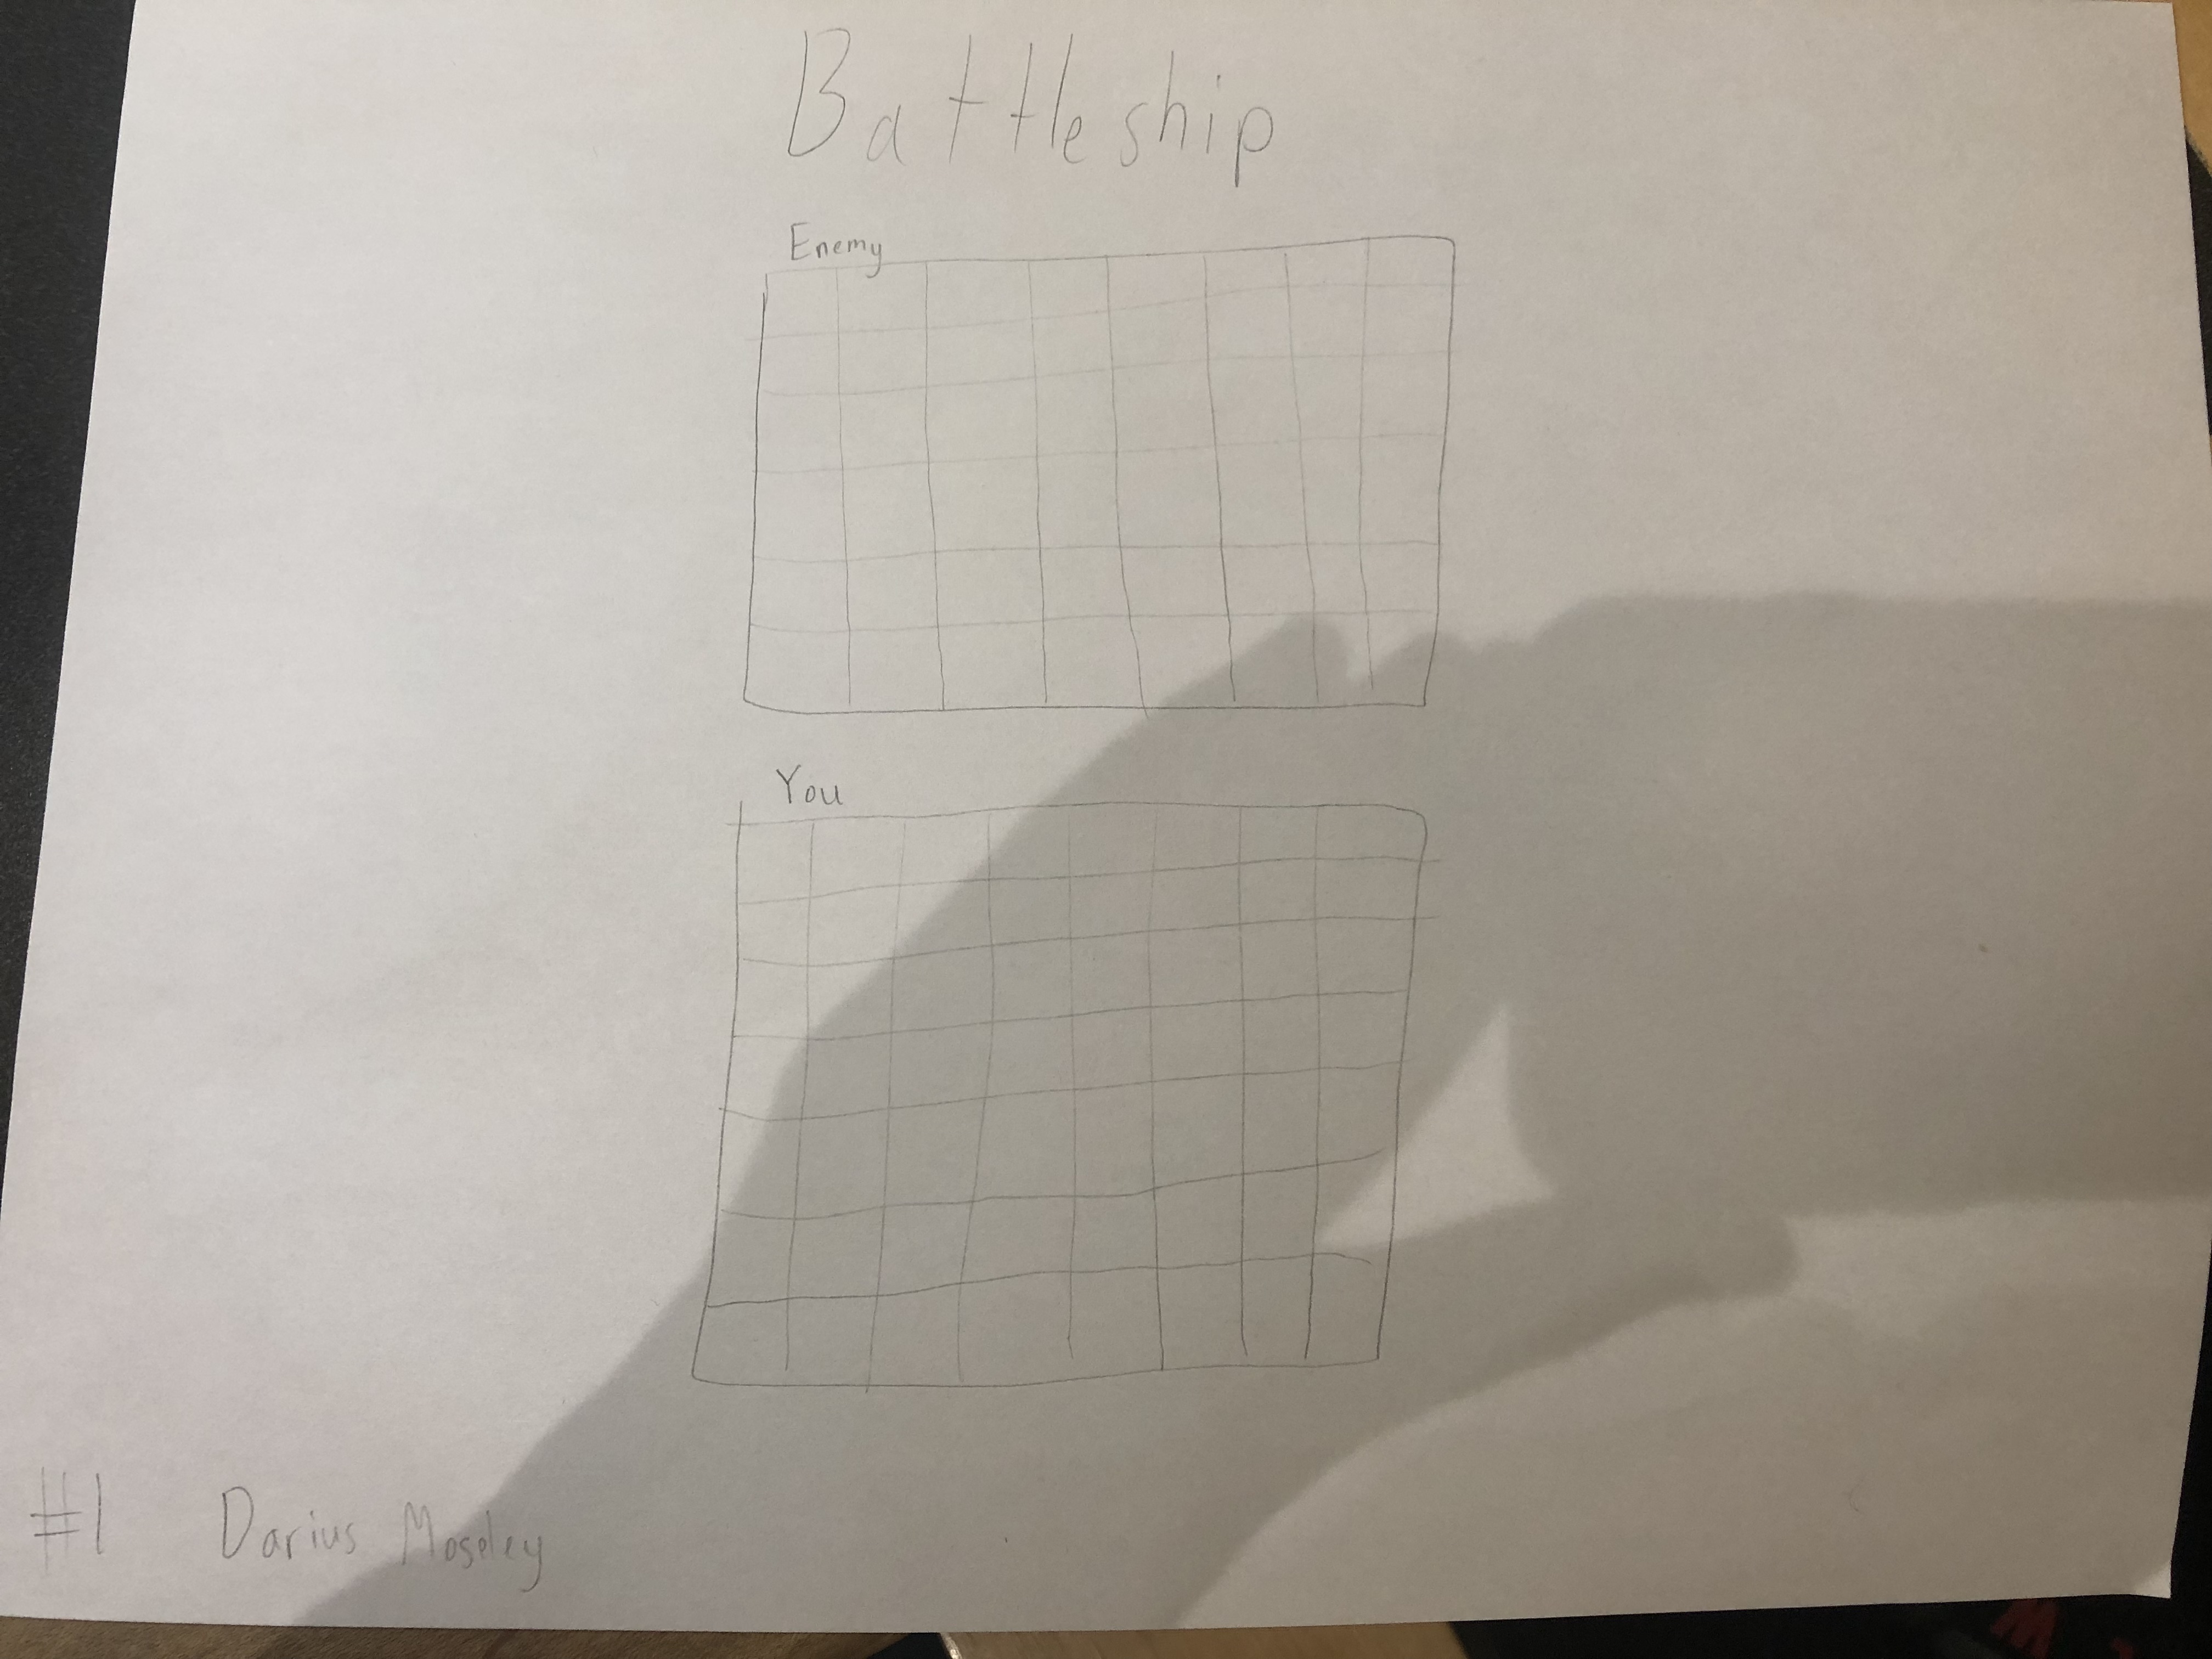 Battleship
Enemy
You
#1 Darius Moseley